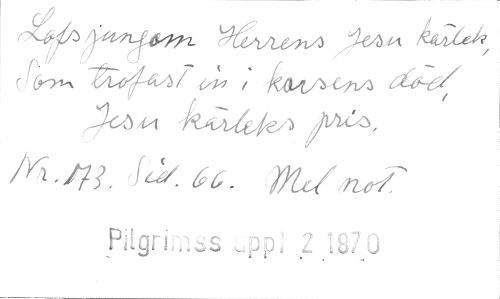 Lofsjungom Herrens Jesu kärlek,
Som trofast in i korsens död,
Jesu kärleks pris.
Nr. 173. Sid. 66. Mel not.
Pilgrimss uppl 2 1870